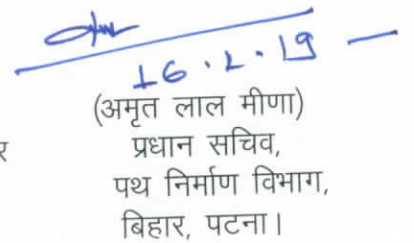 16.2.19
(अमृत लाल मीणा)
र प्रधान सचिव,
पथ निर्माण विभाग,
बिहार, पटना।